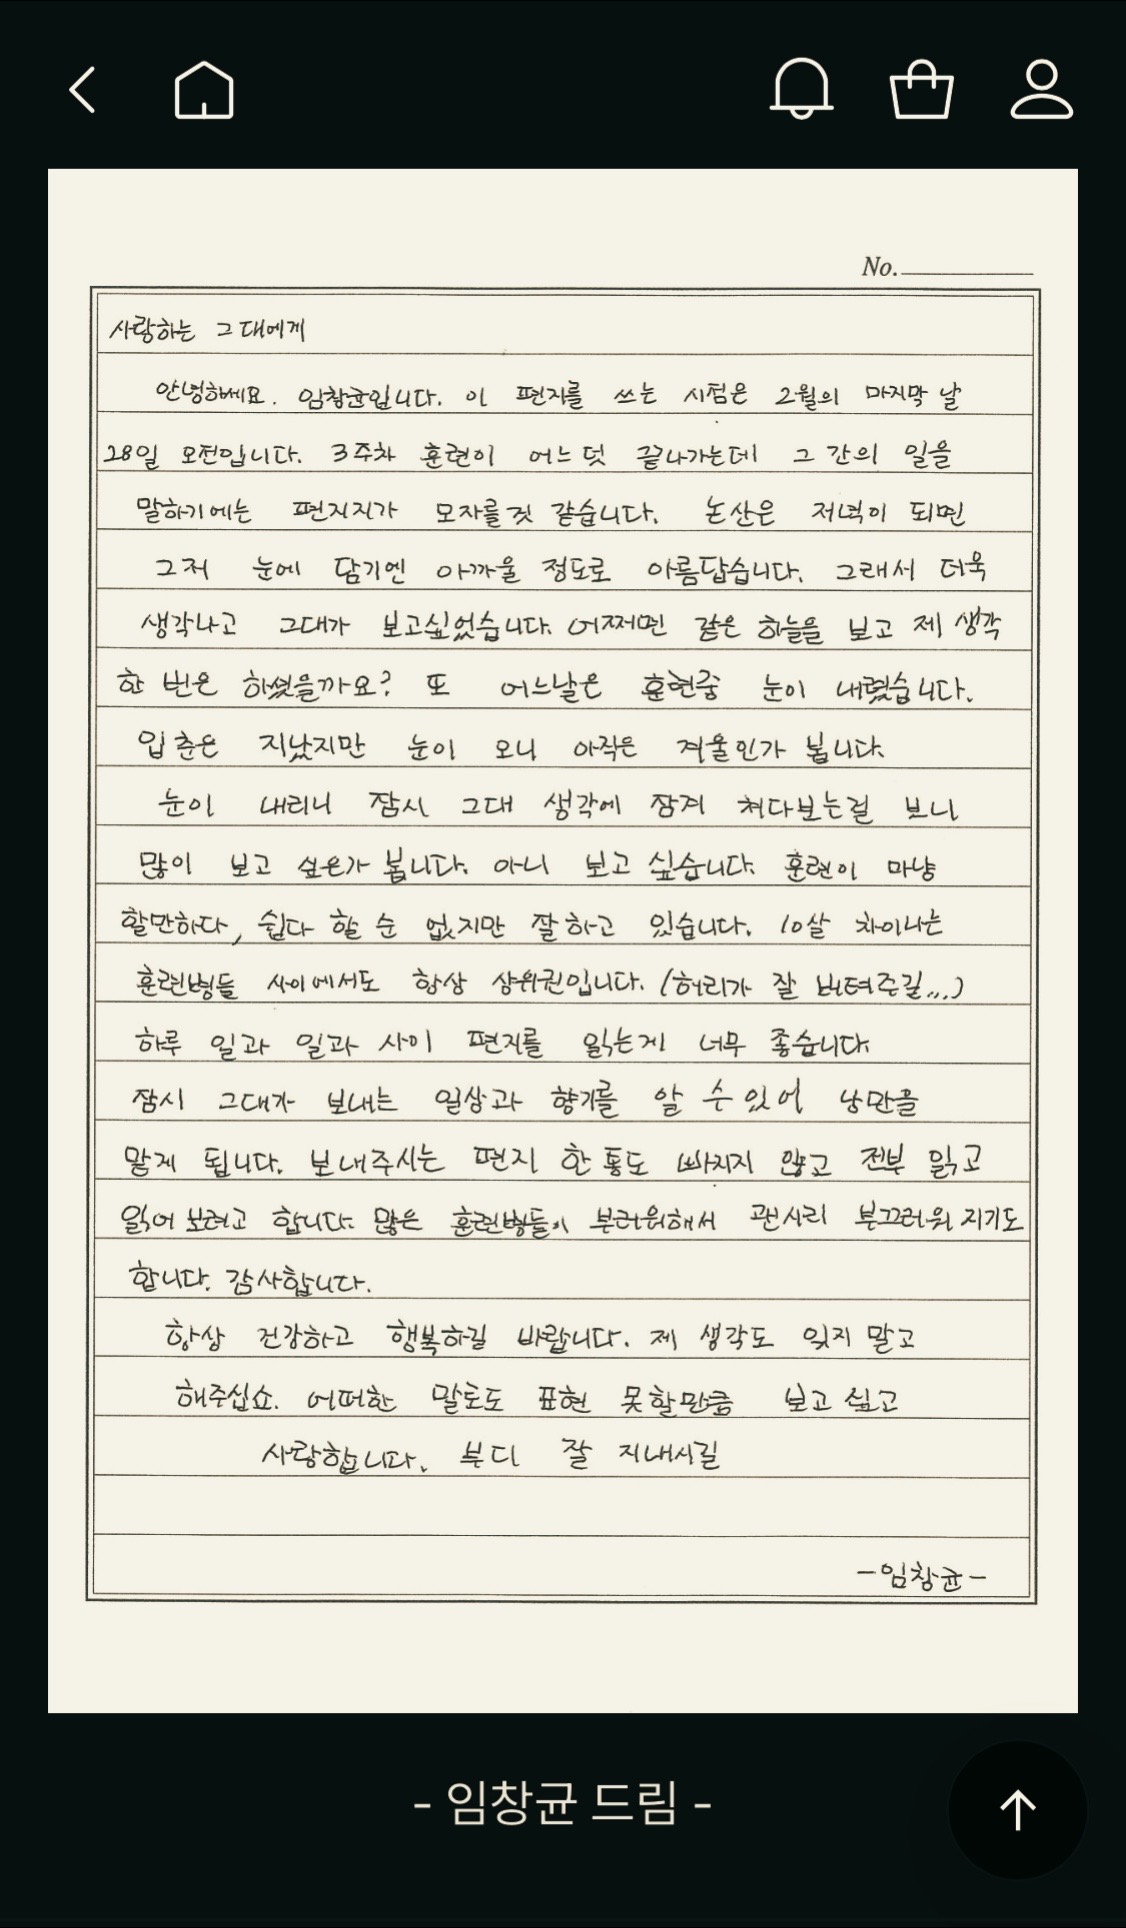 No.
사랑하는 그대에게
안녕하세요. 임창균입니다. 이 편지를 쓰는 시점은 2월의 마지막 날
28일 오전입니다. 3주차 훈련이 어느덧 끝나가는데 그 간의 일을
말하기에는 편지지가 모자를것 같습니다. 논산은 저녁이 되면
그저 눈에 담기엔 아까울 정도로 아름답습니다. 그래서 더욱
생각나고 그대가 보고싶었습니다. 어쩌면 같은 하늘을 보고 제 생각
한 번은 하셨을까요? 또 어느날은 훈련중 눈이 내렸습니다.
입춘은 지났지만 눈이 오니 아직은 겨울인가 봅니다.
눈이 내리니 잠시 그대 생각에 잠겨 쳐다보는걸 보니
많이 보고 싶은가 봅니다. 아니 보고 싶습니다. 훈련이 마냥
할만하다, 쉽다 할 순 없지만 잘하고 있습니다. 10살 차이나는
훈련병들 사이에서도 항상 상위권입니다. (허리가 잘 버텨주길...)
하루 일과 일과 사이 편지를 읽는게 너무 좋습니다
잠시 그대가 보내는 일상과 향기를 알 수 있어 낭만을
맡게 됩니다. 보내주시는 편지 한 통도 빠지지 않고 전부 읽고
읽어 보려고 합니다. 많은 훈련병들이 부러워해서 괜시리 부끄러워 지기도
합니다. 감사합니다.
항상 건강하고 행복하길 바랍니다. 제 생각도 잊지 말고
해주십쇼. 어떠한 말로도 표현 못할만큼 보고 싶고
사랑합니다. 부디 잘 지내시길
-임창균-
- 임창균 드림 -